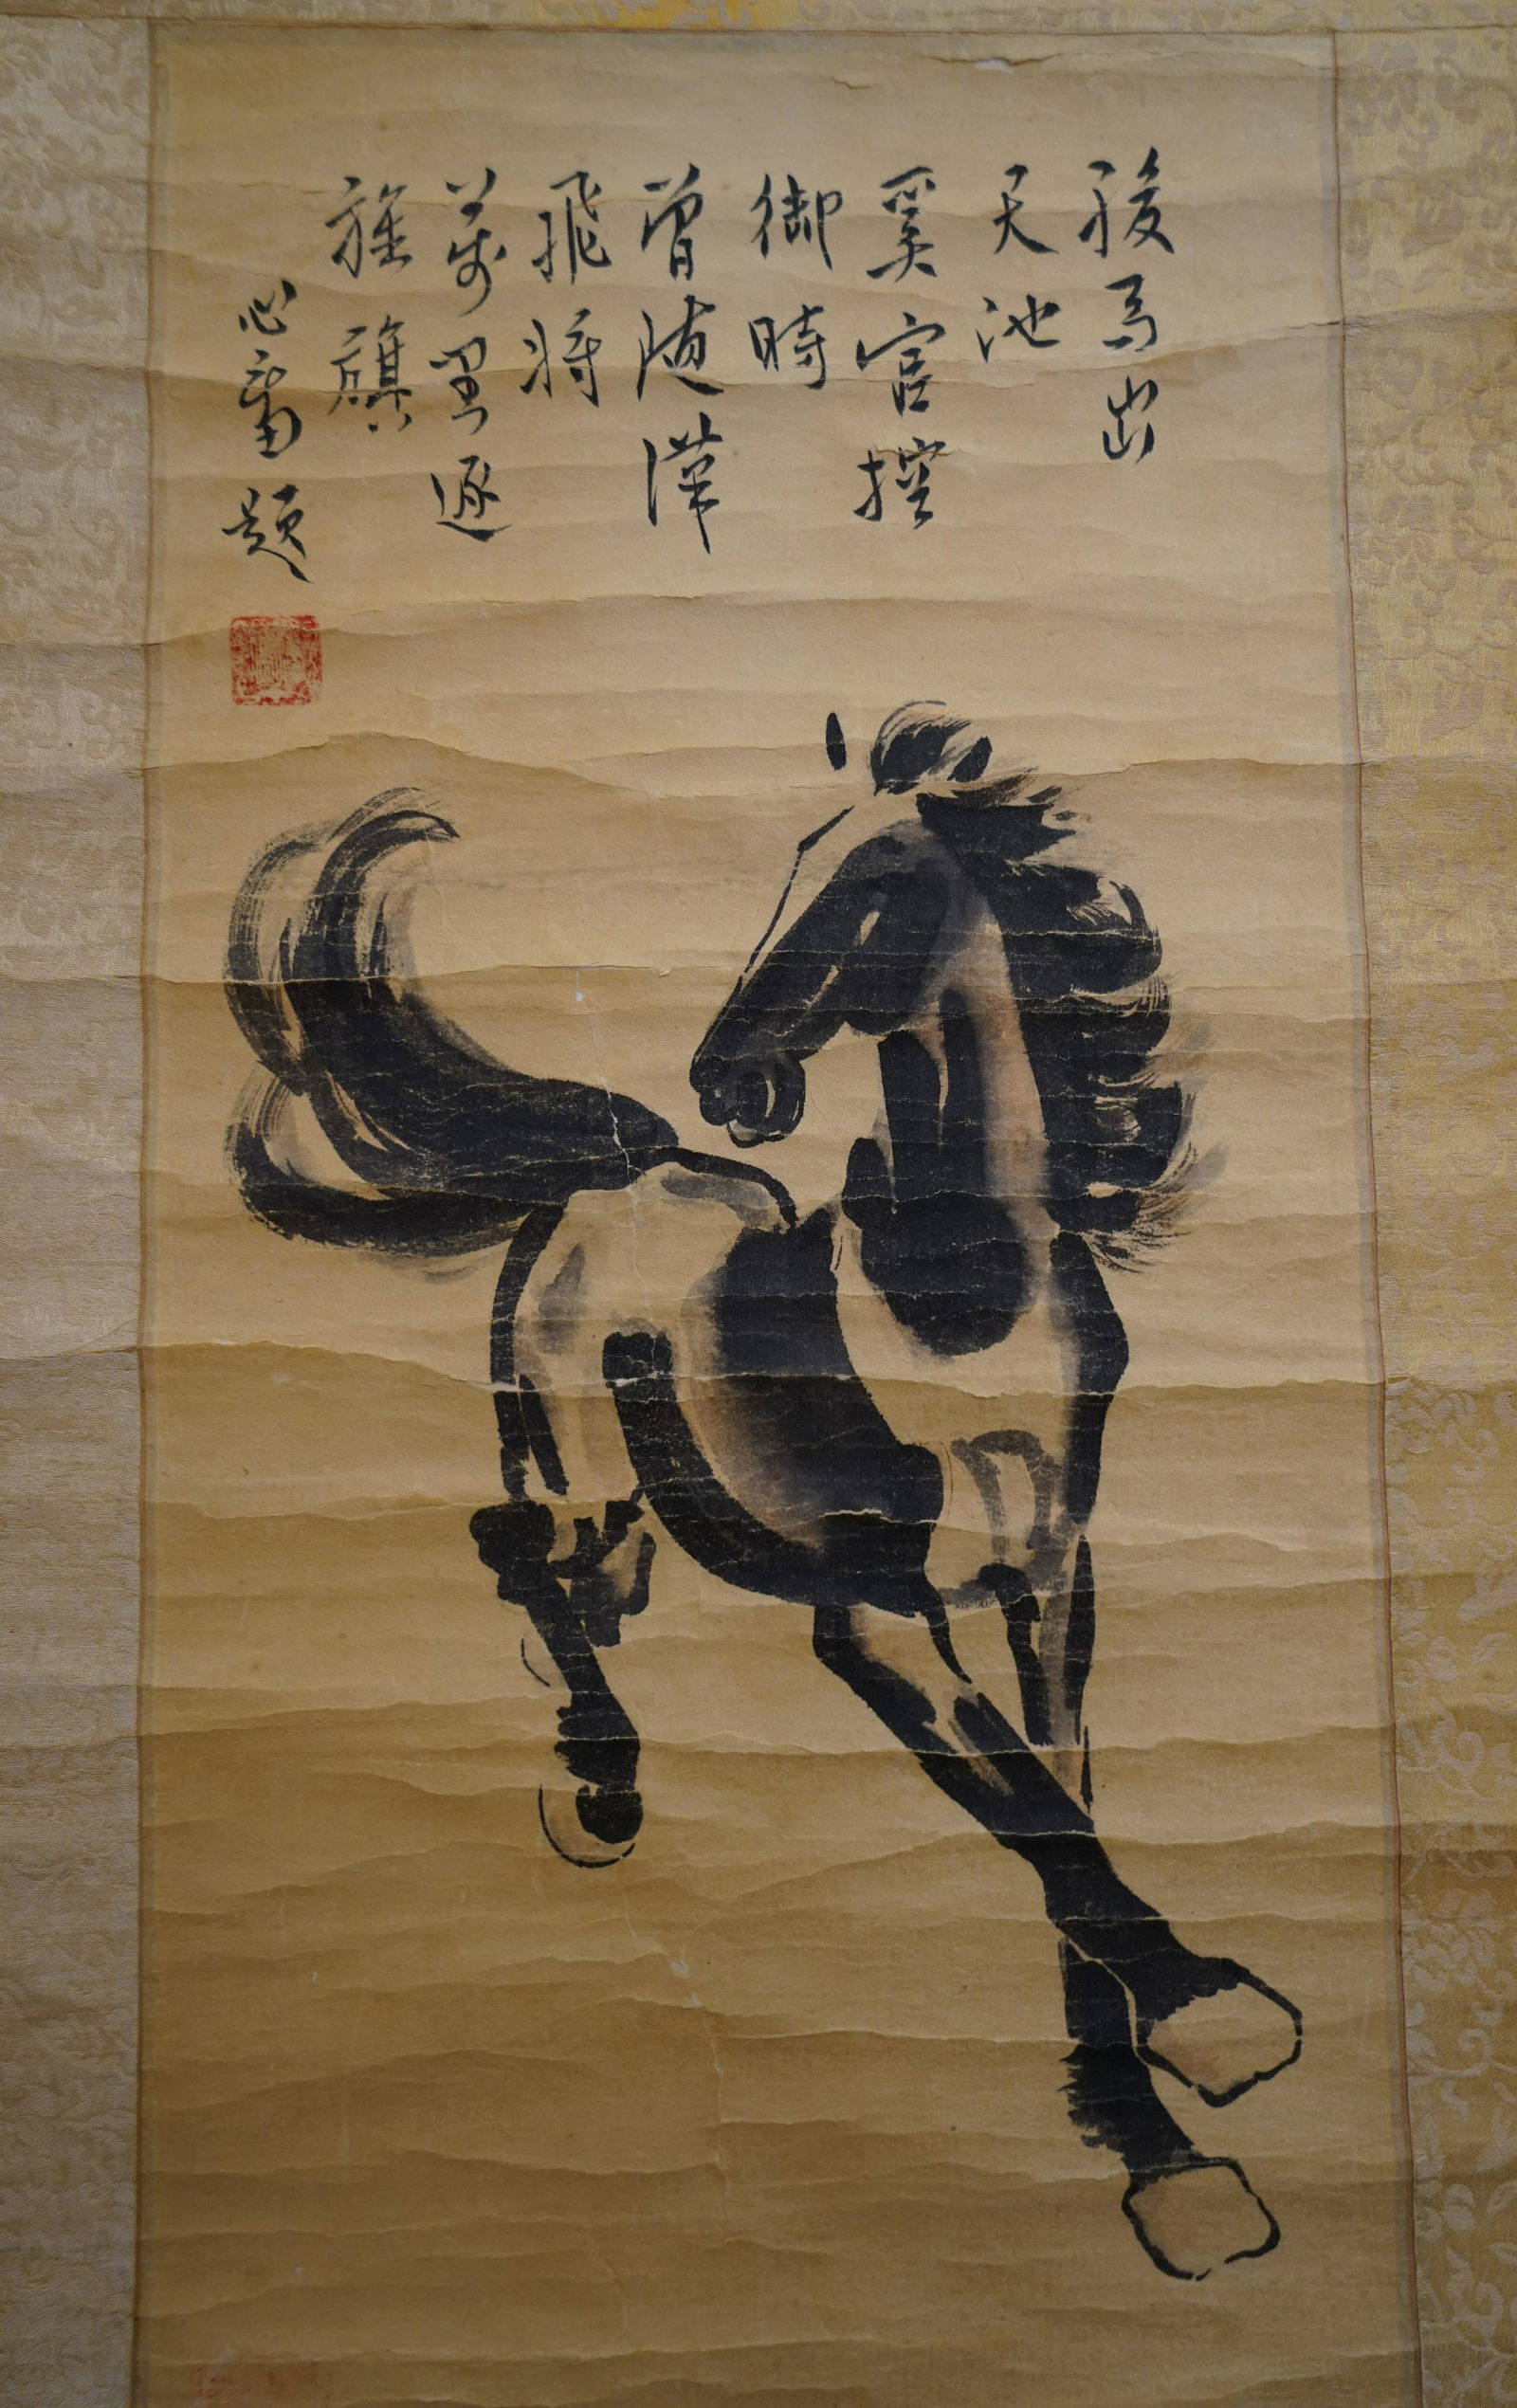 駿馬出
天池
奚官控
御時
曾随漢
飛将
萬里逐
旌旗
心畬題